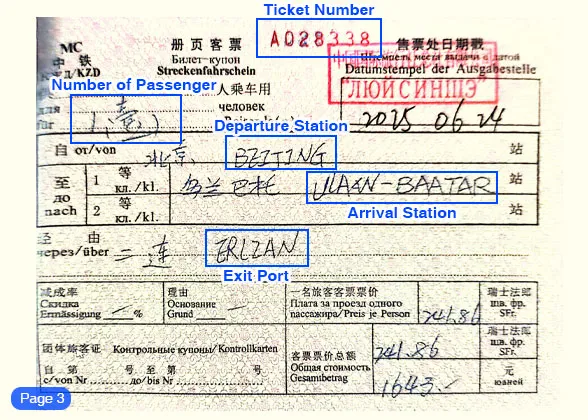 Ticket Number
МС 册页客票 A028338 售票处日期戳
中铁 Билет-купон Штемпель места выдачи с датой
КЖД/KZD Streckenfahrschein Datumstempel der Ausgabestelle
Number of Passenger 人乘车用 "ЛЮЙСИНШЭ"
для человек
für 1(壹) 2025 06 24
Departure Station
自 от/von 北京 BEIJING 站
至 1 等 乌兰巴托 ULAAN-BAATAR 站
до кл./kl.
nach 2 等 Arrival Station 站
кл./kl.
经由
через/über 二连 ERLIAN
Exit Port
减成率 理由 一名旅客客票票价 瑞士法郎
Скидка Основание Плата за проезд одного шв. фр.
Ermässigung — % Grund — пассажира/Preis je Person 241.86 SFr.
团体旅客证 Контрольные купоны/Kontrollkarten 客票票价总额 241.86 瑞士法郎
шв. фр.
Общая стоимость SFr.
自第 号至第 号 Gesamtbetrag 元
с/von Nr до/bis Nr 1643.- юаней
Page 3